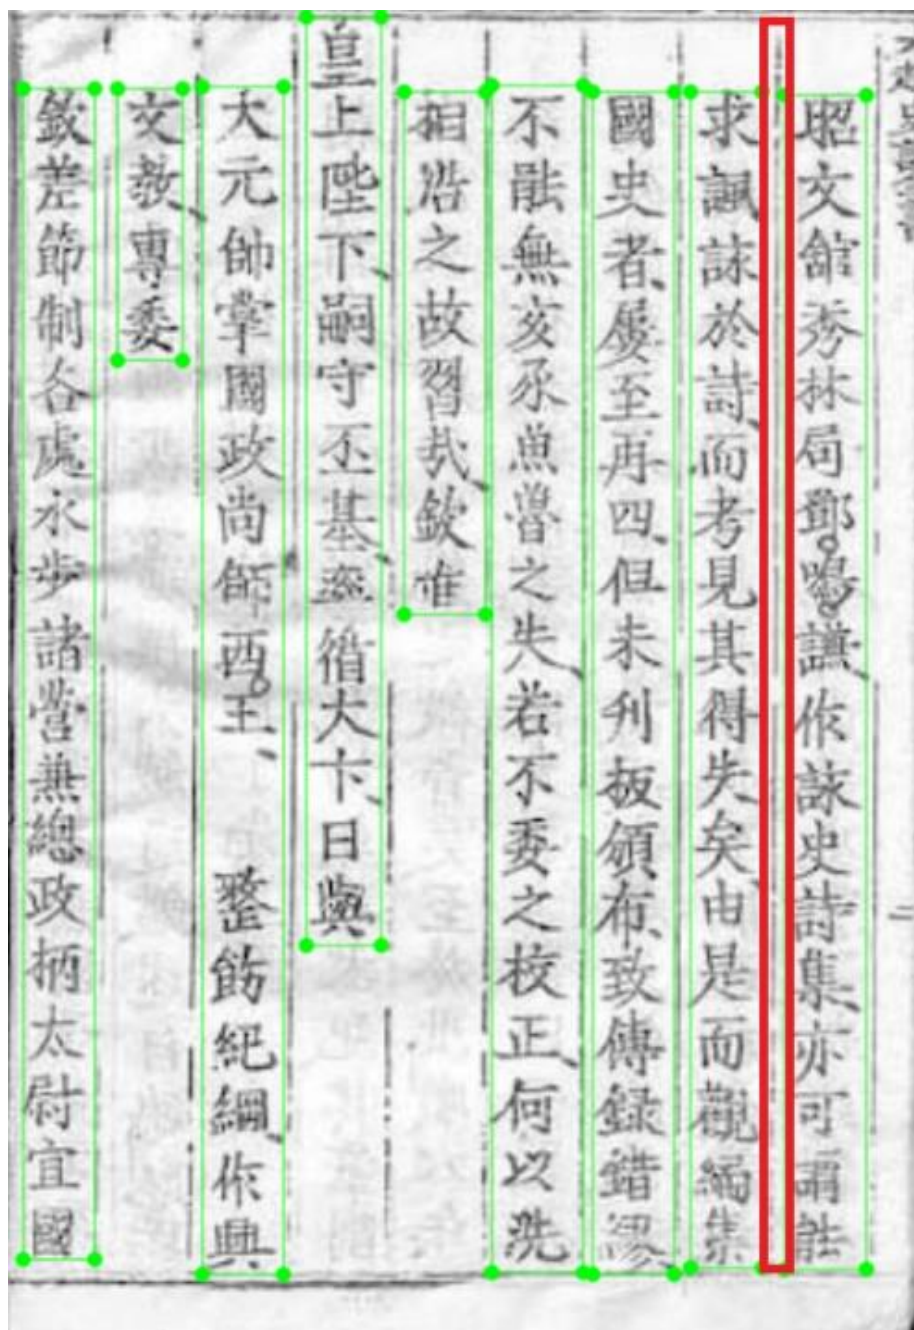 昭文舘秀林局鄧鳴謙作詠史詩集亦可謂能
求諷詠於詩而考見其得失矣由是而觀編集
國史者屡至再四但未刋板頒布致傳録錯繆
不能無亥豕魚魯之失若不委之校正何以洗
相沿之故習哉欽惟
皇上陛下嗣守丕基遹循大卞日與
大元帥掌國政尚師西王整飭紀綱作興
文教專委
欽差節制各處水步諸營兼總政柄太尉宜國